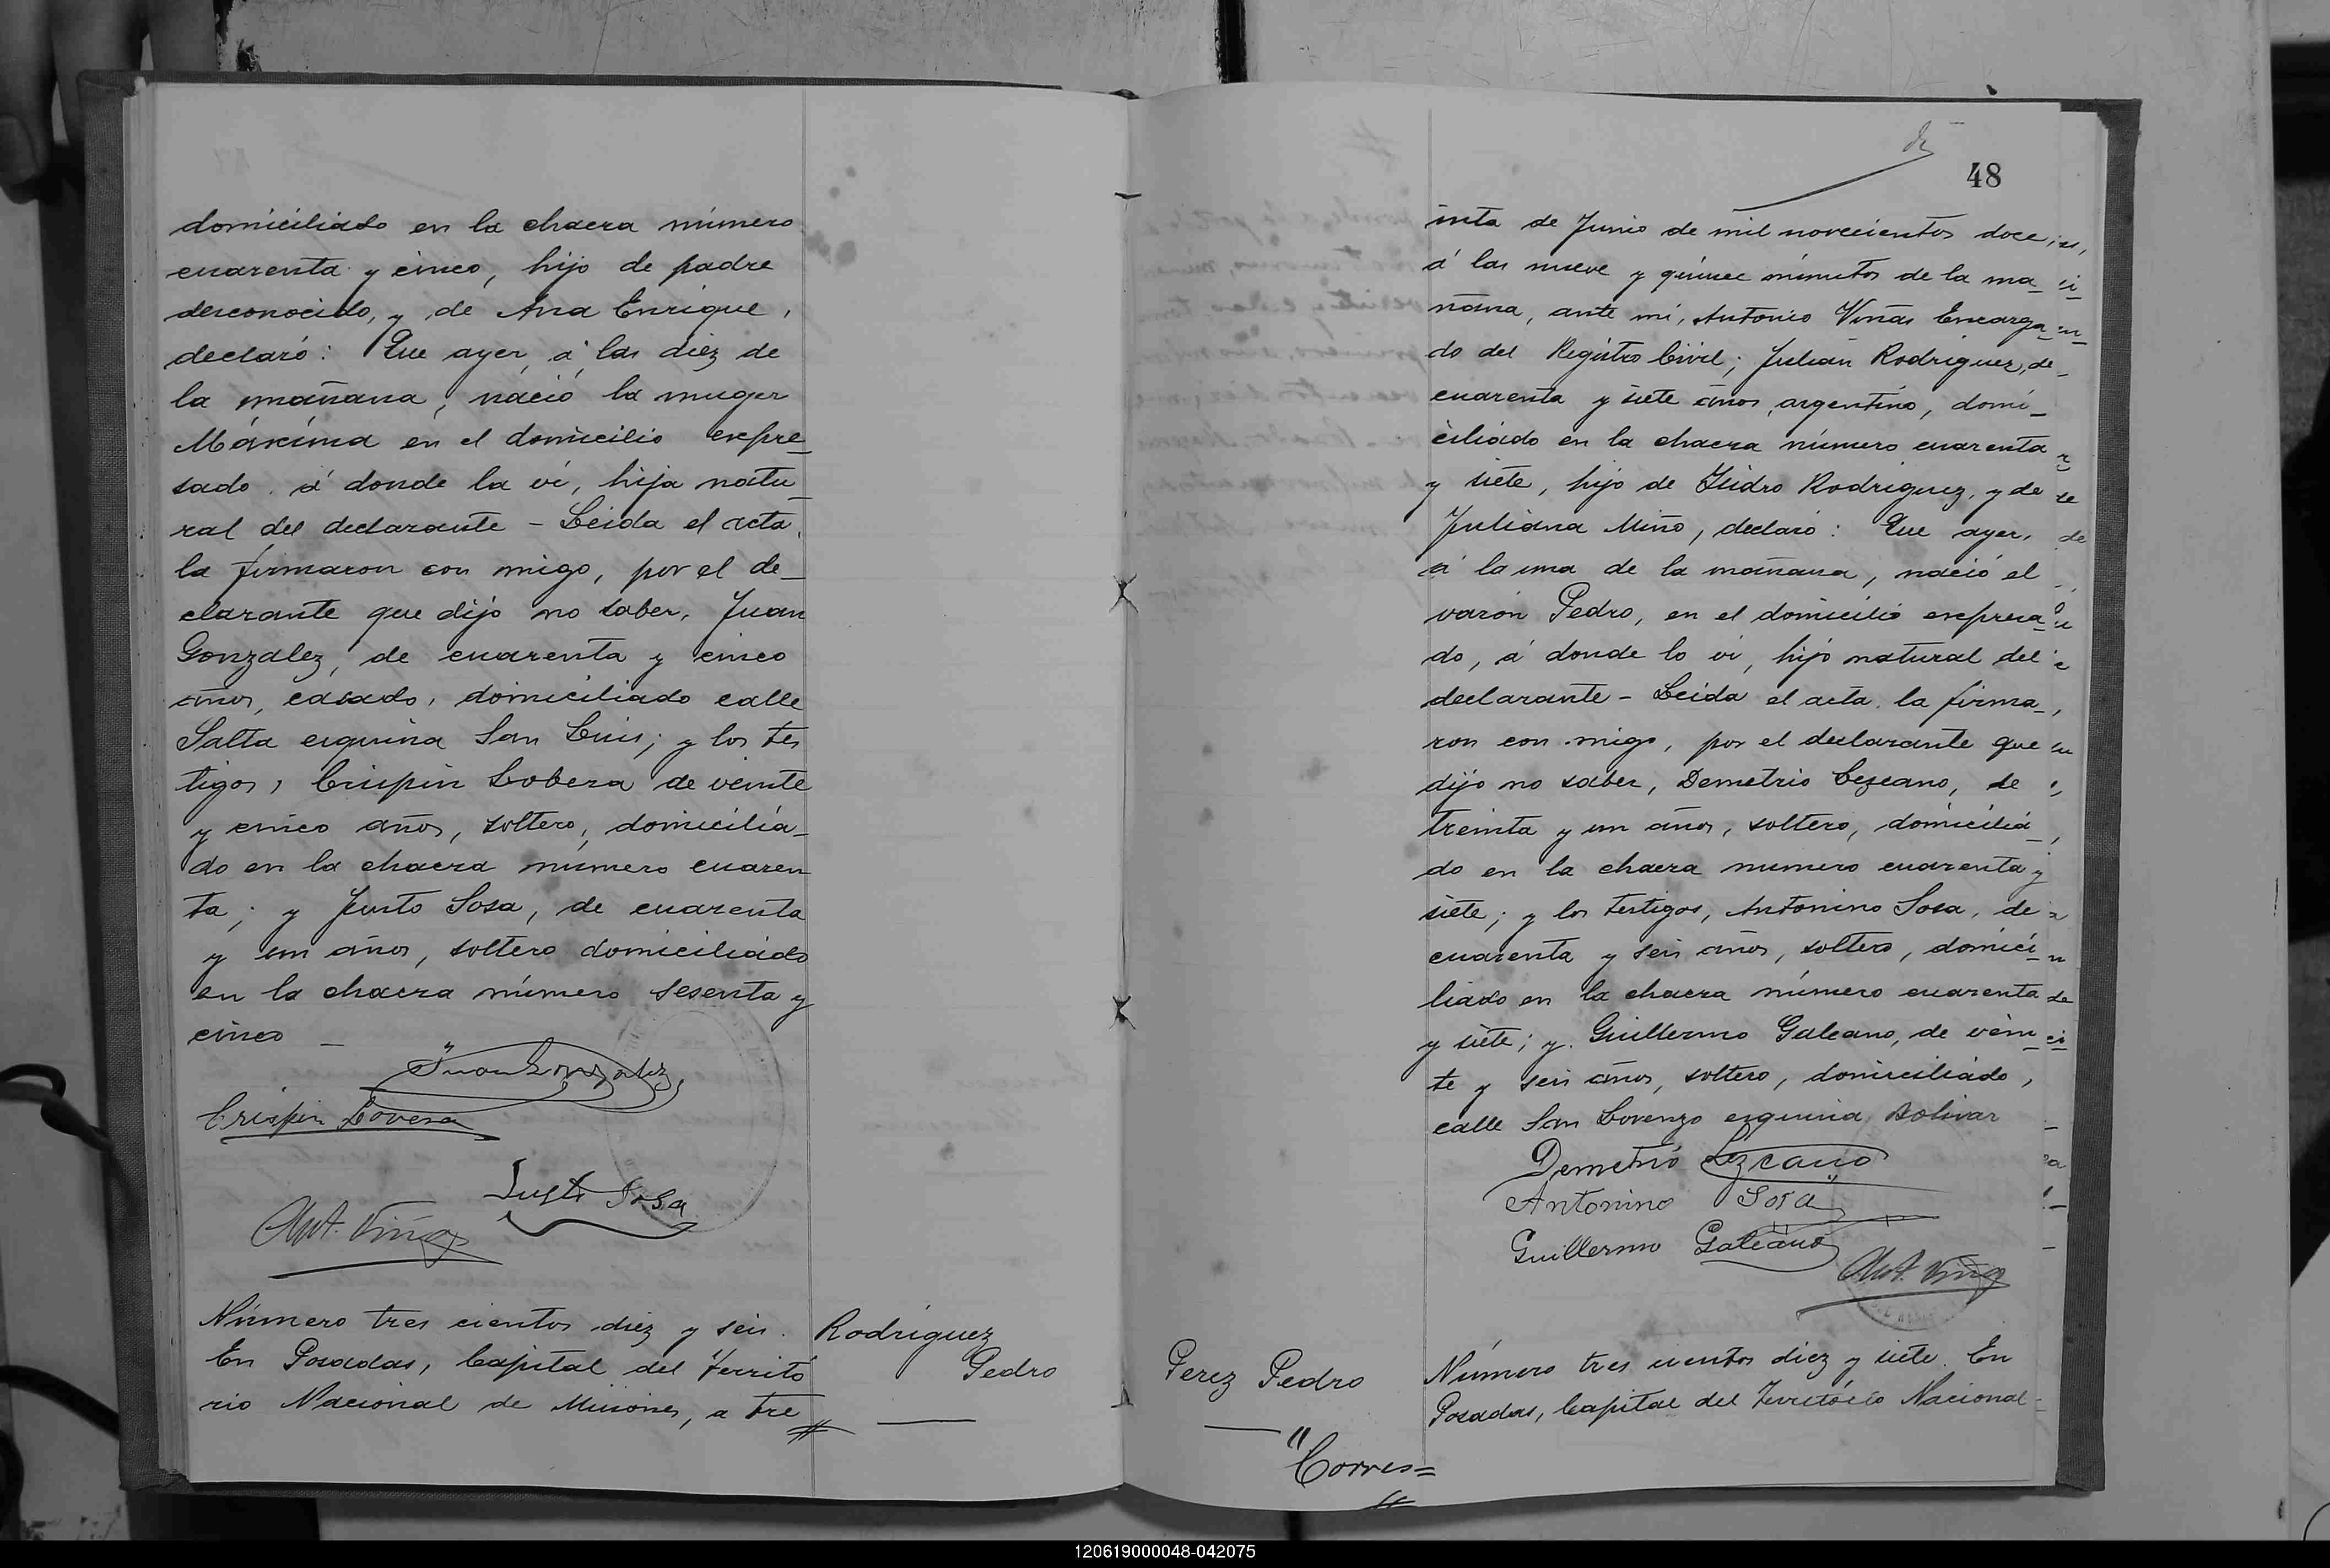 domiciliado en la chacra número
cuarenta y cinco, hijo de padre
desconocido, y de Ana Enrique,
declaró: Que ayer, á las diez de
la mañana, nació la muger
Máxima en el domicilio expre_
sado á donde la vi, hija natu_
ral del declarante - Leida el acta
la firmaron con migo, por el de_
clarante que dijo no saber, Juan
Gonzalez, de cuarenta y cinco
años, casado, domiciliado calle
Salta esquina San Luis; y los tes
tigos, Crispin Lobera de veinte
y cinco años, soltero, domicilia_
do en la chacra número cuaren
ta; y Justo Sosa, de cuarenta
y un años, soltero domiciliado
en la chacra número sesenta y
cinco _
Juan Gonzalez
Crispin Lovera
Justo Sosa
Ant. Viñas
Número tres cientos diez y seis.
En Posadas, Capital del Territo
rio Nacional de Misiones, a tre
Rodríguez
Pedro
48
inta de Junio de mil novecientos doce
á las nueve y quince minutos de la ma_
ñana, ante mi, Antonio Viñas Encarga_
do del Registro Civil; Julián Rodriguez, de
cuarenta y siete años, argentino, domi_
ciliado en la chacra número cuarenta
y siete, hijo de Isidro Rodriguez, y de
Juliana Miño, declaró: Que ayer,
á la una de la mañana, nació el
varón Pedro, en el domicilio expresa
do, á donde lo vi, hijo natural del
declarante - Leida el acta, la firma_
ron con migo, por el declarante que
dijo no saber, Demetrio Lezcano, de
treinta y un años, soltero, domicilia_
do en la chacra numero cuarenta y
siete; y los testigos, Antonino Sosa, de
cuarenta y seis años, soltero, domici_
liado en la chacra número cuarenta
y siete; y Guillermo Galeano, de vein_
te y seis años, soltero, domiciliado,
calle San Lorenzo esquina Bolivar
Demetrio Lezcano
Antonino Sosa
Guillermo Galeano
Ant. Viñas
Perez Pedro
Número tres cientos diez y siete. En
Posadas, Capital del Territorio Nacional
"Corres=
120619000048-042075